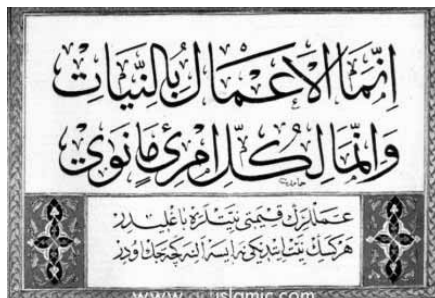 إِنَّمَا الْأَعْمَالُ بِالنِّيَّاتِ
وَإِنَّمَا لِكُلِّ امْرِئٍ مَا نَوَى
عمللرك قيمتى نيتلره باغليدر
هركسك نيت ايتديكى نه ايسه الينه كچه جك اودر